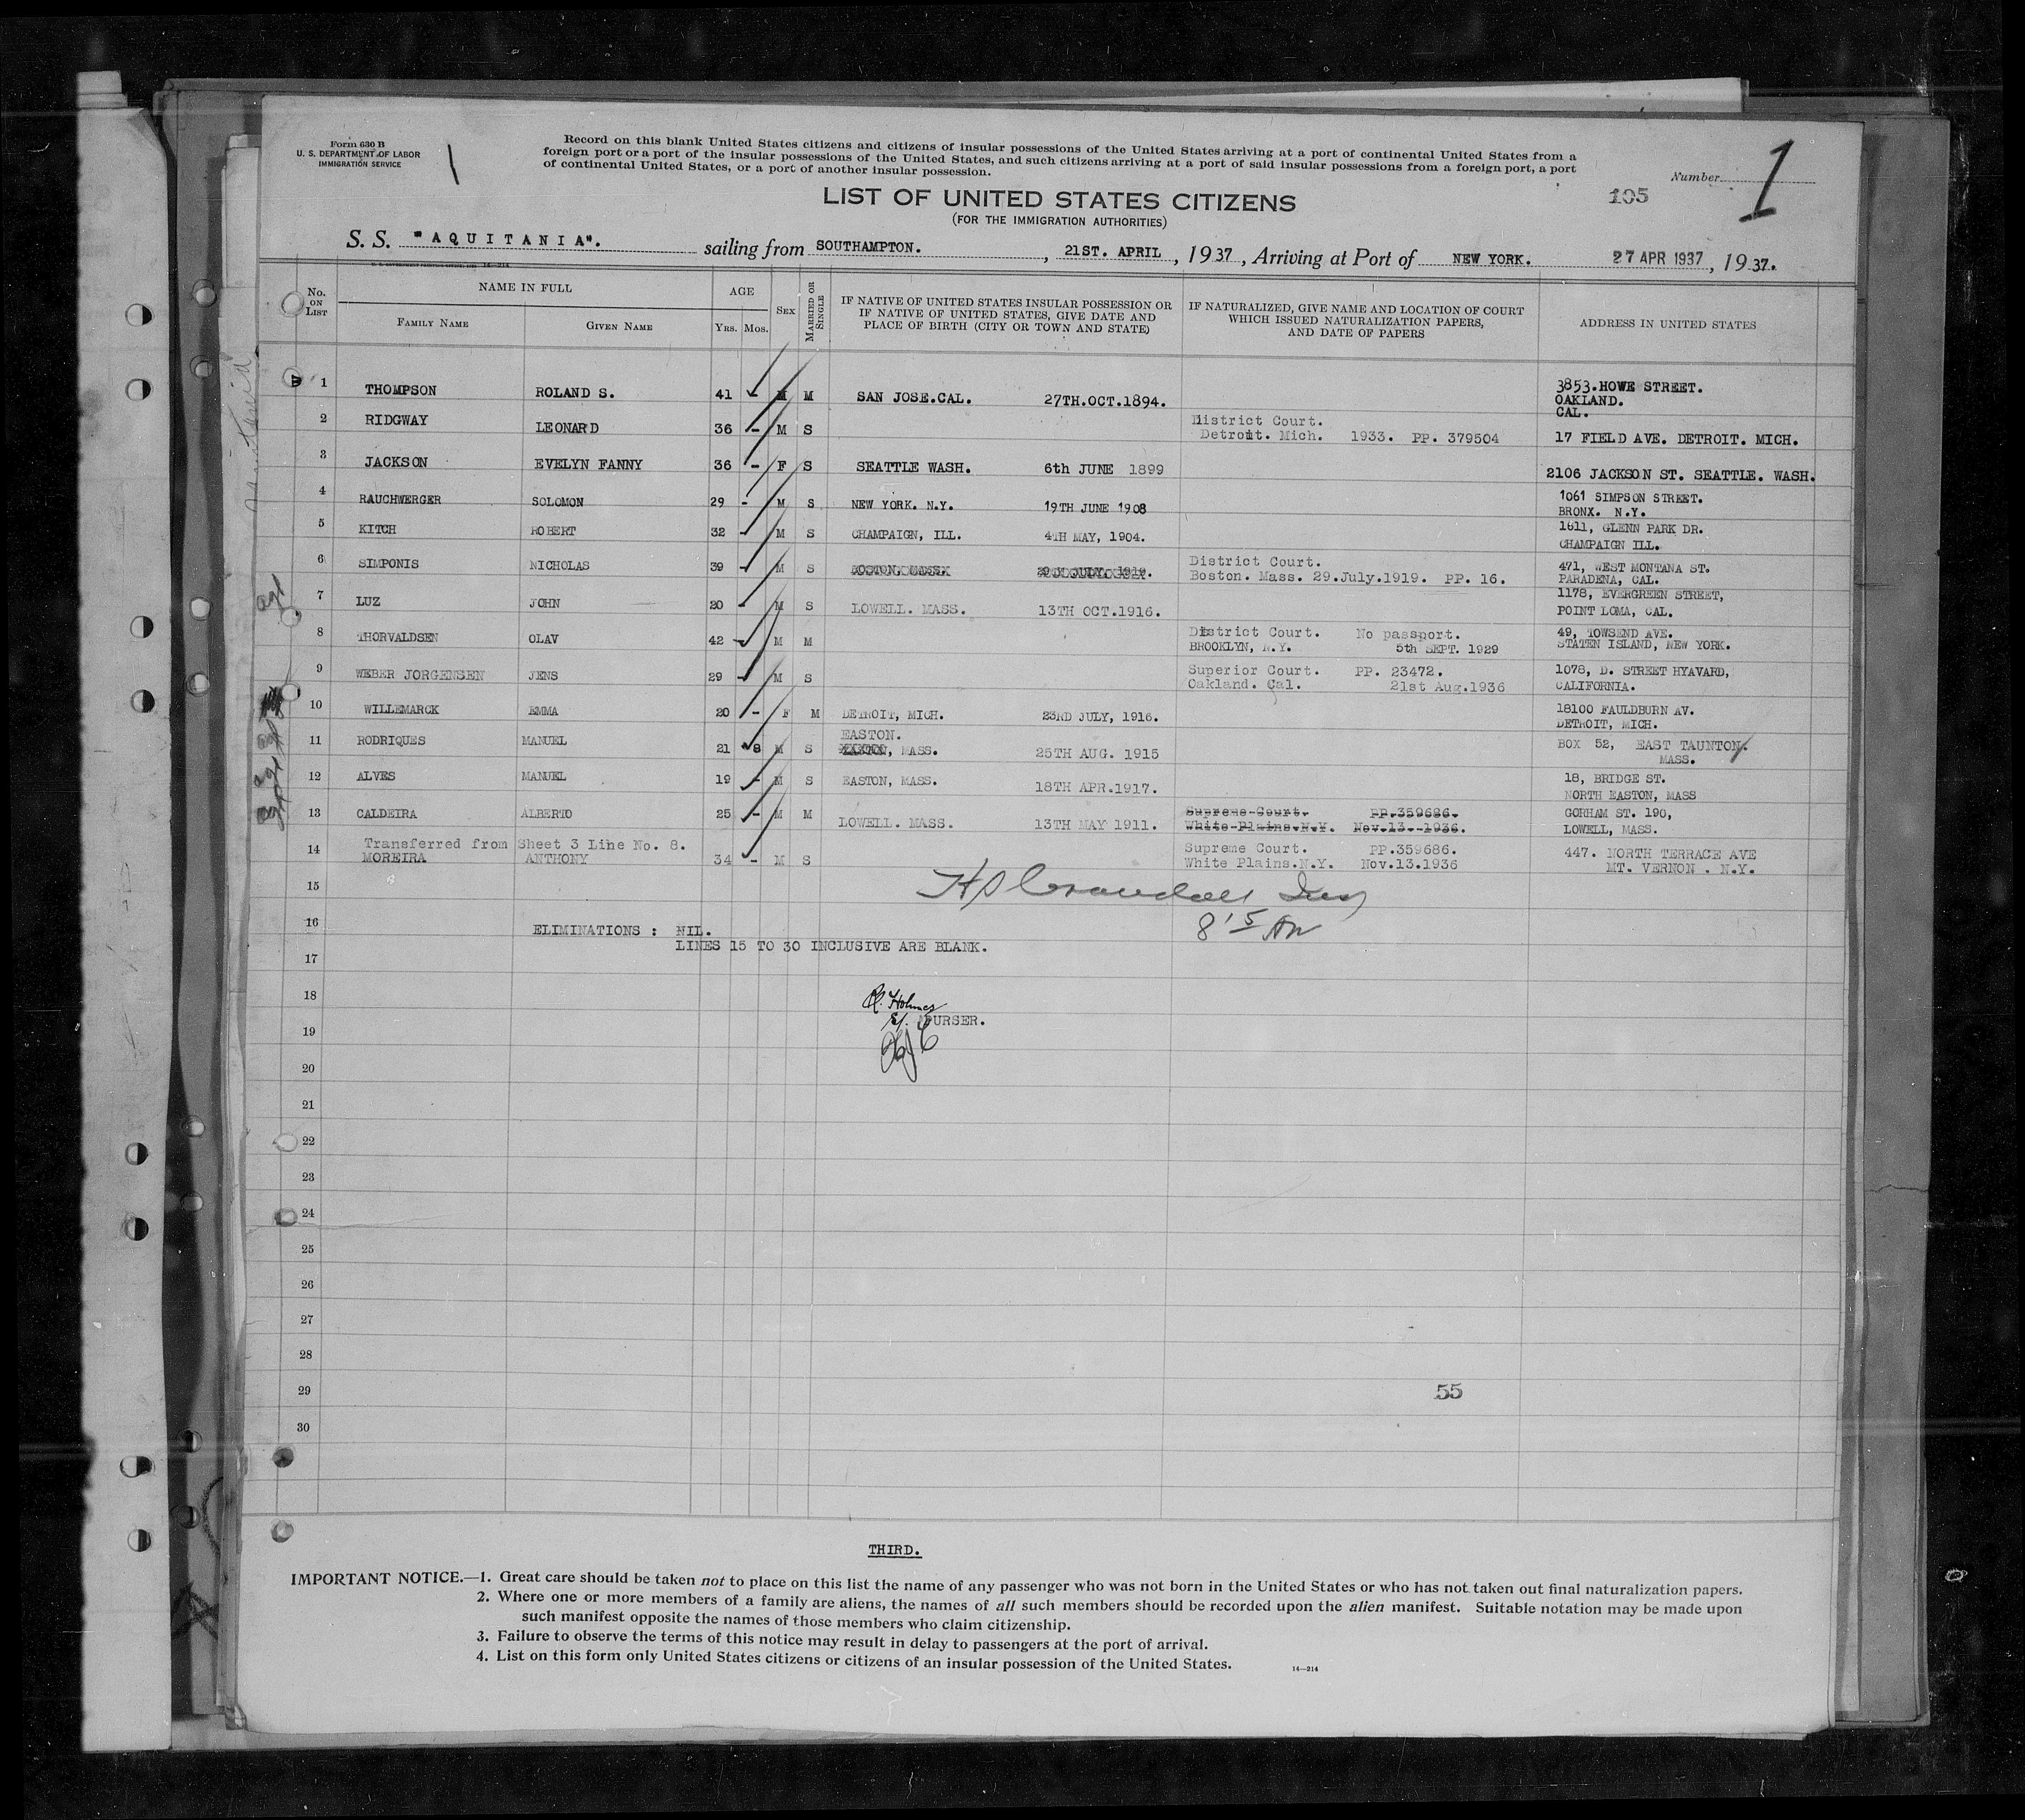 Form 630 B
U. S. DEPARTMENT OF LABOR
IMMIGRATION SERVICE
1
Record on this blank United States citizens and citizens of insular possessions of the United States arriving at a port of continental United States from a
foreign port or a port of the insular possessions of the United States, and such citizens arriving at a port of said insular possessions from a foreign port, a port
of continental United States, or a port of another insular possession.
Number 1
105
LIST OF UNITED STATES CITIZENS
(FOR THE IMMIGRATION AUTHORITIES)
S. S. "AQUITANIA". sailing from SOUTHAMPTON. , 21ST. APRIL , 1937 , Arriving at Port of NEW YORK. 27 APR 1937 , 1937.
No. ON LIST
NAME IN FULL
FAMILY NAME
GIVEN NAME
AGE
YRS. MOS.
SEX
MARRIED OR SINGLE
IF NATIVE OF UNITED STATES INSULAR POSSESSION OR
IF NATIVE OF UNITED STATES, GIVE DATE AND
PLACE OF BIRTH (CITY OR TOWN AND STATE)
IF NATURALIZED, GIVE NAME AND LOCATION OF COURT
WHICH ISSUED NATURALIZATION PAPERS,
AND DATE OF PAPERS
ADDRESS IN UNITED STATES
1 THOMPSON ROLAND S. 41 M M SAN JOSE.CAL. 27TH.OCT.1894. 3853.HOWE STREET.
OAKLAND.
CAL.
2 RIDGWAY LEONARD 36 - M S District Court.
Detroit. Mich. 1933. PP. 379504 17 FIELD AVE. DETROIT. MICH.
3 JACKSON EVELYN FANNY 36 - F S SEATTLE WASH. 6th JUNE 1899 2106 JACKSON ST. SEATTLE. WASH.
4 RAUCHWERGER SOLOMON 29 - M S NEW YORK. N.Y. 19TH JUNE 1908 1061 SIMPSON STREET.
BRONX. N.Y.
5 KITCH ROBERT 32 - M S CHAMPAIGN, ILL. 4TH MAY, 1904. 1611, GLENN PARK DR.
CHAMPAIGN ILL.
6 SIMPONIS NICHOLAS 39 - M S District Court.
Boston. Mass. 29.July.1919. PP. 16. 471, WEST MONTANA ST.
PARADENA, CAL.
7 LUZ JOHN 20 - M S LOWELL. MASS. 13TH OCT.1916. 1178, EVERGREEN STREET,
POINT LOMA, CAL.
8 THORVALDSEN OLAV 42 - M M District Court. No passport.
BROOKLYN, N.Y. 5th SEPT. 1929 49, TOWSEND AVE.
STATEN ISLAND, NEW YORK.
9 WEBER JORGENSEN JENS 29 - M S Superior Court. PP. 23472.
Oakland. Cal. 21st Aug.1936 1078, D. STREET HYAVARD,
CALIFORNIA.
10 WILLEMARCK EMMA 20 - F M DETROIT, MICH. 23RD JULY, 1916. 18100 FAULDBURN AV.
DETROIT, MICH.
11 RODRIQUES MANUEL 21 8 M S EASTON.
, MASS. 25TH AUG. 1915 BOX 52, EAST TAUNTON.
MASS.
12 ALVES MANUEL 19 - M S EASTON, MASS. 18TH APR.1917. 18, BRIDGE ST.
NORTH EASTON, MASS
13 CALDEIRA ALBERTO 25 - M M LOWELL. MASS. 13TH MAY 1911. Supreme Court. PP.359686.
White Plains.N.Y. Nov.13.-1936. GORHAM ST. 190,
LOWELL, MASS.
14 Transferred from Sheet 3 Line No. 8.
MOREIRA ANTHONY 34 - M S Supreme Court. PP.359686.
White Plains.N.Y. Nov.13.1936 447. NORTH TERRACE AVE
MT. VERNON . N.Y.
15
16 ELIMINATIONS : NIL.
LINES 15 TO 30 INCLUSIVE ARE BLANK.
17
18
Holmes
PURSER.
19
20
21
22
23
24
25
26
27
28
29
55
30
THIRD.
IMPORTANT NOTICE.—1. Great care should be taken not to place on this list the name of any passenger who was not born in the United States or who has not taken out final naturalization papers.
2. Where one or more members of a family are aliens, the names of all such members should be recorded upon the alien manifest. Suitable notation may be made upon
such manifest opposite the names of those members who claim citizenship.
3. Failure to observe the terms of this notice may result in delay to passengers at the port of arrival.
4. List on this form only United States citizens or citizens of an insular possession of the United States.
14—214